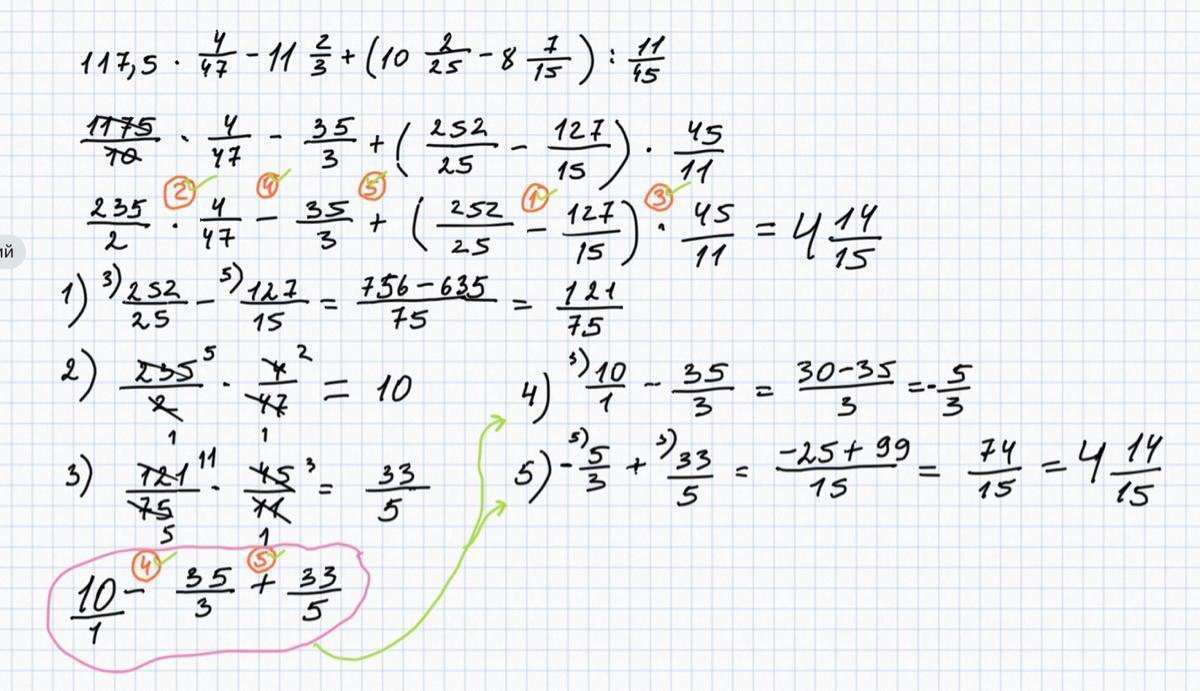 117,5 · 4/47 - 11 2/3 + (10 2/25 - 8 7/15) : 11/45
1175/10 · 4/47 - 35/3 + (252/25 - 127/15) · 45/11
② ④ ⑤ ① ③
235/2 · 4/47 - 35/3 + (252/25 - 127/15) · 45/11 = 4 14/15
ий
1) 3) 252/25 - 5) 127/15 = 756-635/75 = 121/75
2) 235/2 5 1 · 4/47 2 1 = 10
3) 121/75 11 5 · 45/11 3 1 = 33/5
4) 3) 10/1 - 35/3 = 30-35/3 = -5/3
5) - 5) 5/3 + 3) 33/5 = -25+99/15 = 74/15 = 4 14/15
④ ⑤
10/1 - 35/3 + 33/5